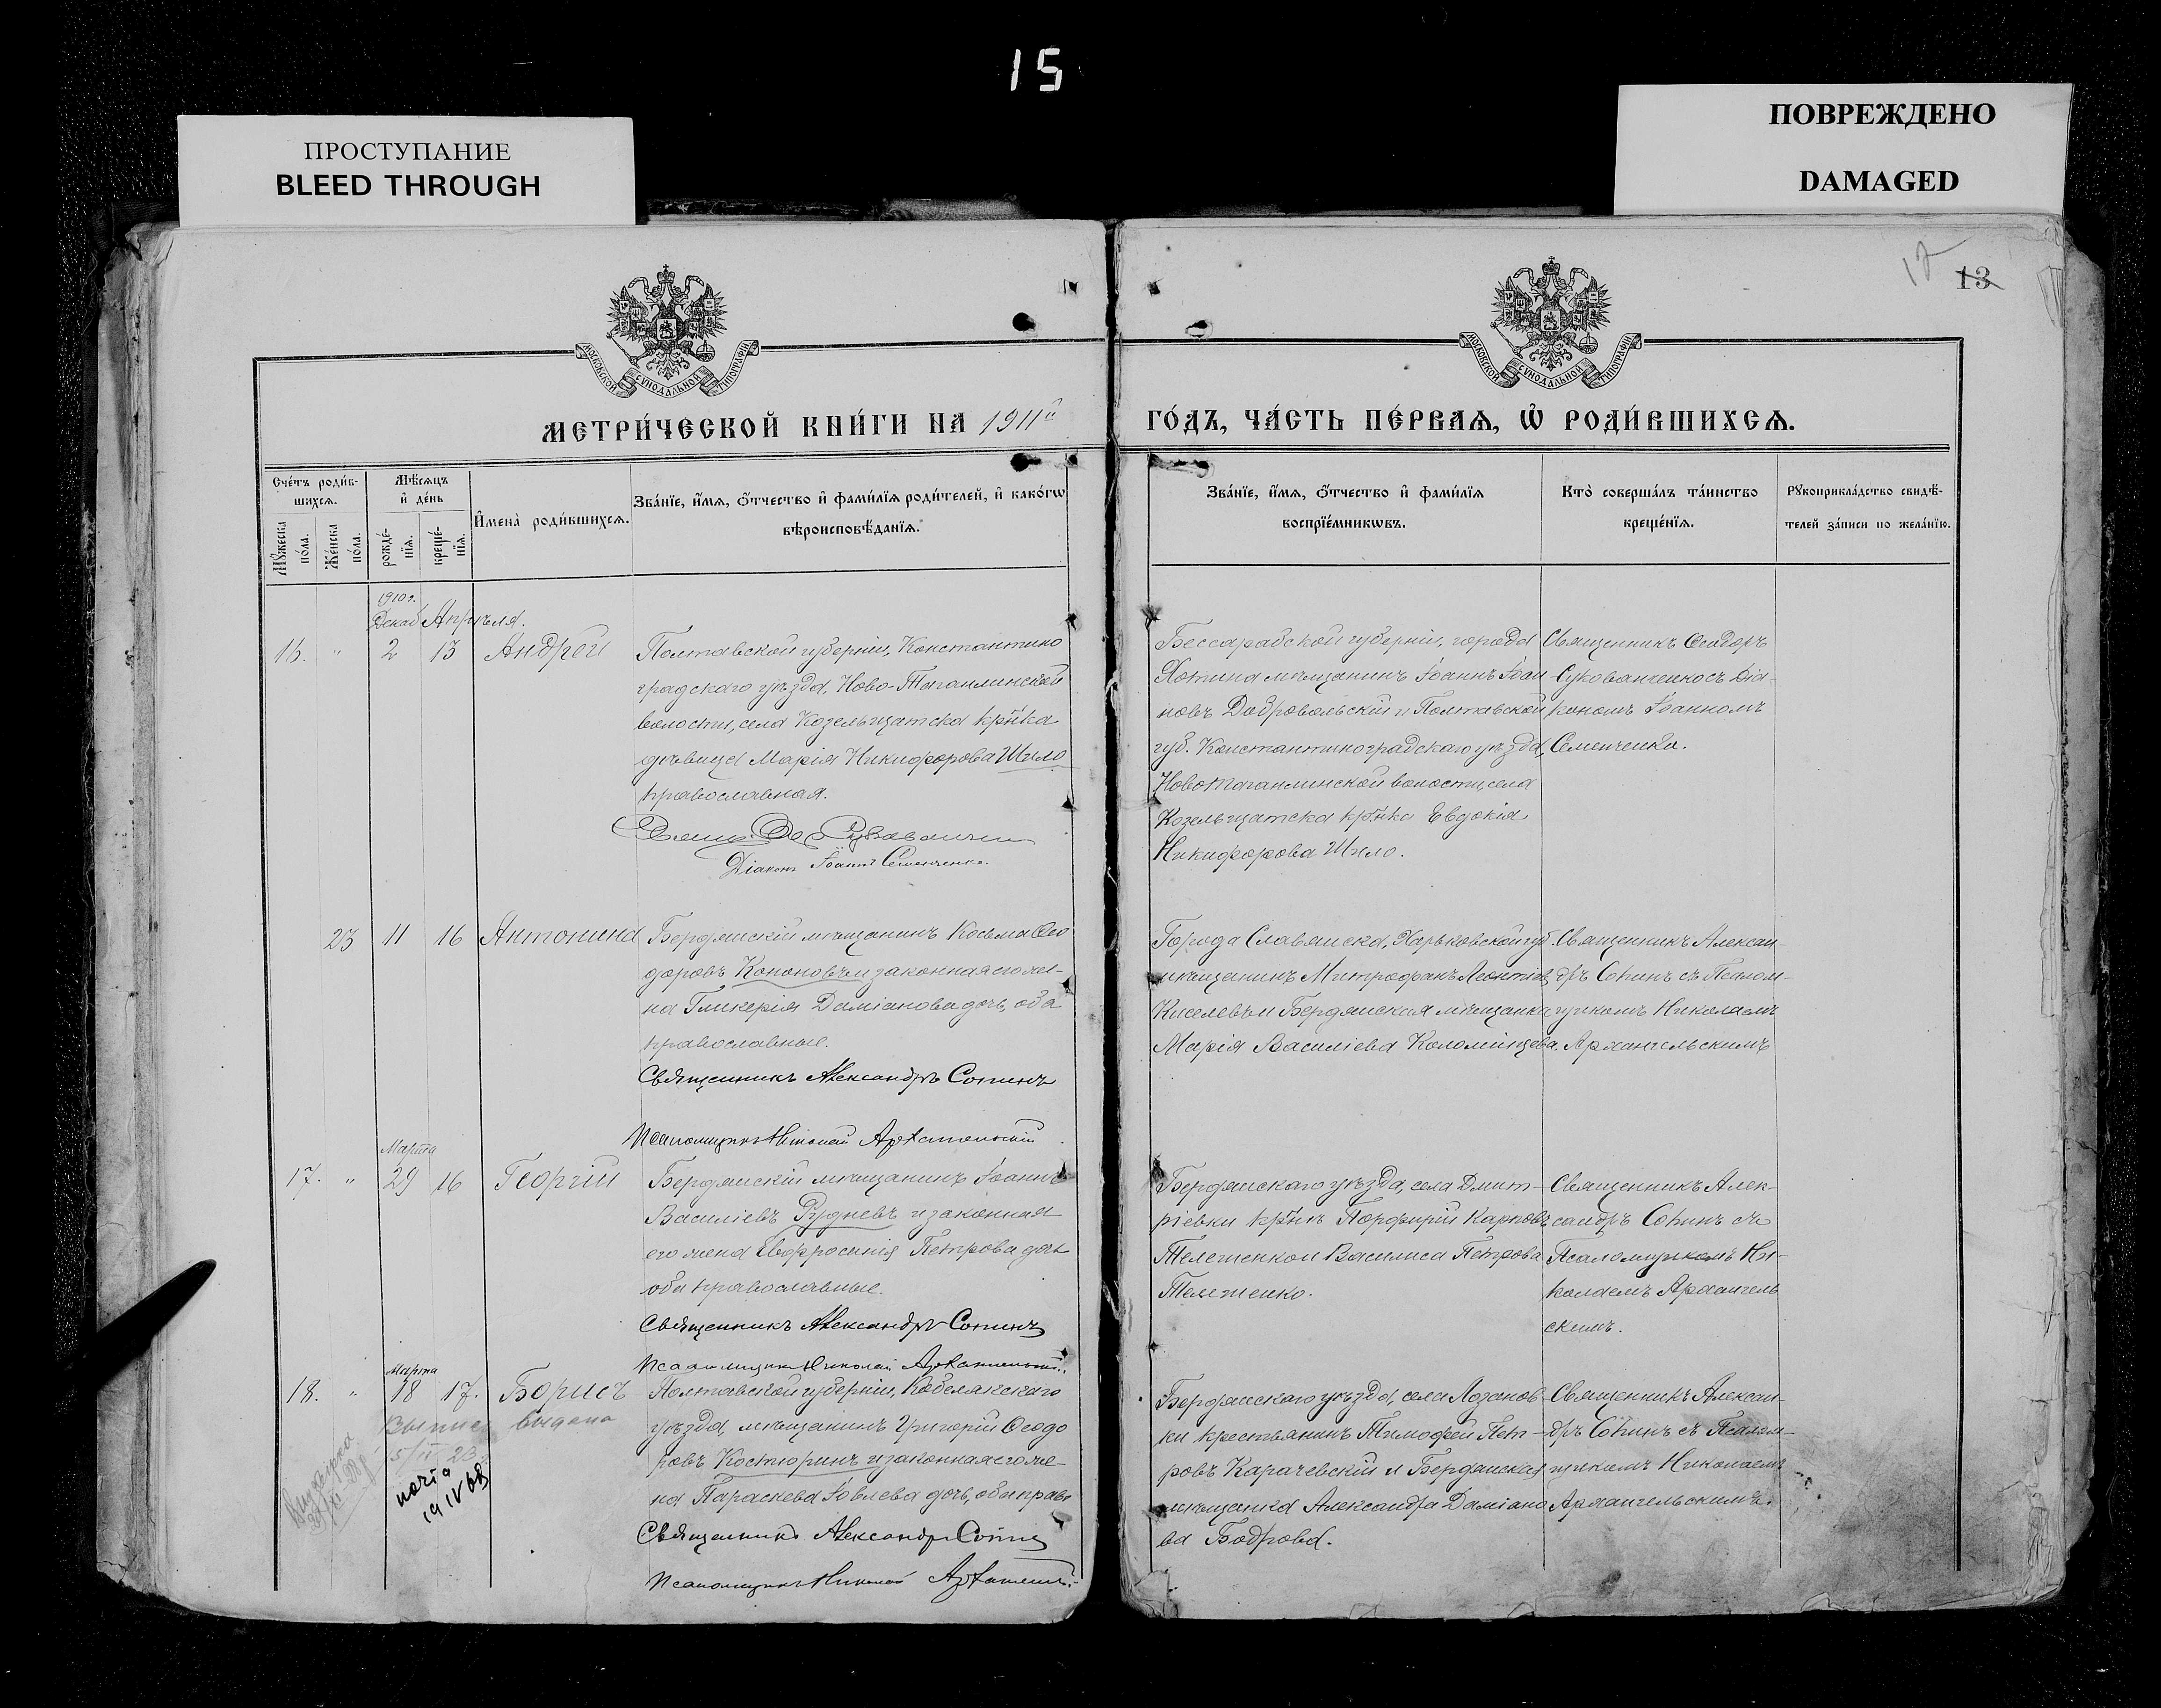 15
ПРОСТУПАНИЕ
BLEED THROUGH
ПОВРЕЖДЕНО
DAMAGED
13
МОСКОВСКОЙ СѴНОДАЛЬНОЙ ТИПОГРАФІИ
МОСКОВСКОЙ СѴНОДАЛЬНОЙ ТИПОГРАФІИ
МЕТРИ́ЧЕСКОЙ КНИ́ГИ НА 1911й
ГО́ДЪ, ЧА́СТЬ ПЕ́РВАѦ, Ѡ РОДИ́ВШИХСѦ.
Сче́тъ роди́в-
шихсѧ.
Мѹжеска по́ла.
Же́нска по́ла.
Мѣ́сѧцъ
и де́нь
рожде́-
нїѧ.
креще́-
нїѧ.
И҆мена̀ роди́вшихсѧ.
Зва́нїе, и҆́мѧ, ѻ҆́тчество и҆ фами́лїѧ роди́телей, и҆ како́гѡ
вѣроисповѣ́данїѧ.
Зва́нїе, и҆́мѧ, ѻ҆́тчество и҆ фами́лїѧ
воспрїе́мникѡвъ.
Кто̀ соверша́лъ та́инство
креще́нїѧ.
Рѹкоприкла́дство свидѣ́-
телей за́писи по жела́нїю.
1910 г.
Декаб Апрѣля.
16. " 2 13 Андрей
Полтавской губерніи, Константино
градскаго уѣзда, Ново-Тагамлинской
волости, села Козельщатска кр̃нка
дѣвица Марія Никифорова Шило
православная.
Діаконъ Іоаннъ Семенченко.
Бессарабской губерніи, города
Хотина мѣщанинъ Іоаннъ Іоан-
новъ Добровольскій и Полтавской
губ. Константиноградскаго уѣзда,
Новотагамлинской волости, села
Козельщатска кр̃нка Евдокія
Никифорова Шило.
Священникъ Ѳеодоръ
Сукованченко съ Діа-
кономъ Іоанномъ
Семенченко.
23 11 16 Антонина
Бердянскій мѣщанинъ Косьма Ѳео
доровъ Кононовъ и законная его же-
на Гликерія Даміанова дочь, оба
православные.
Священникъ Александръ Сопинъ
Псаломщикъ Николай Архангельскій
Города Славянска, Харьковской губ.
мѣщанинъ Митрофанъ Леонтіев
Киселевъ и Бердянская мѣщанка
Марія Василіева Коломійцева.
Священникъ Алексан-
дръ Сопинъ съ Псалом-
щикомъ Николаемъ
Архангельскимъ
Марта
17. " 29 16 Георгій
Бердянскій мѣщанинъ Іоаннъ
Василіевъ Рудневъ и законная
его жена Евфросинія Петрова дочь
оба православные.
Священникъ Александръ Сопинъ
Псаломщикъ Николай Архангельскій.
Бердянскаго уѣзда, села Дмит-
ріевки кр̃нъ Порфирій Карповъ
Тележенко и Василиса Петрова
Тележенко.
Священникъ Алек-
сандръ Сопинъ съ
Псаломщикомъ Ни-
колаемъ Архангель
скимъ.
Марта
18. " 18 17. Борисъ
Полтавской губерніи, Кобелякскаго
уѣзда, мѣщанинъ Григорій Ѳеодо
ровъ Костюринъ и законная его же-
на Параскева Іовлева дочь, оба прав
Священникъ Александръ Сопинъ
Псаломщикъ Николай Архангель.
выпись выдана
5/II 23
19 IV
Бердянскаго уѣзда, села Лозанов-
ки крестьянинъ Тимофей Пет-
ровъ Карачевскій и Бердянская
мѣщанка Александра Даміано
ва Бодрова.
Священникъ Алексан-
дръ Сопинъ съ Псалом-
щикомъ Николаемъ
Архангельскимъ.